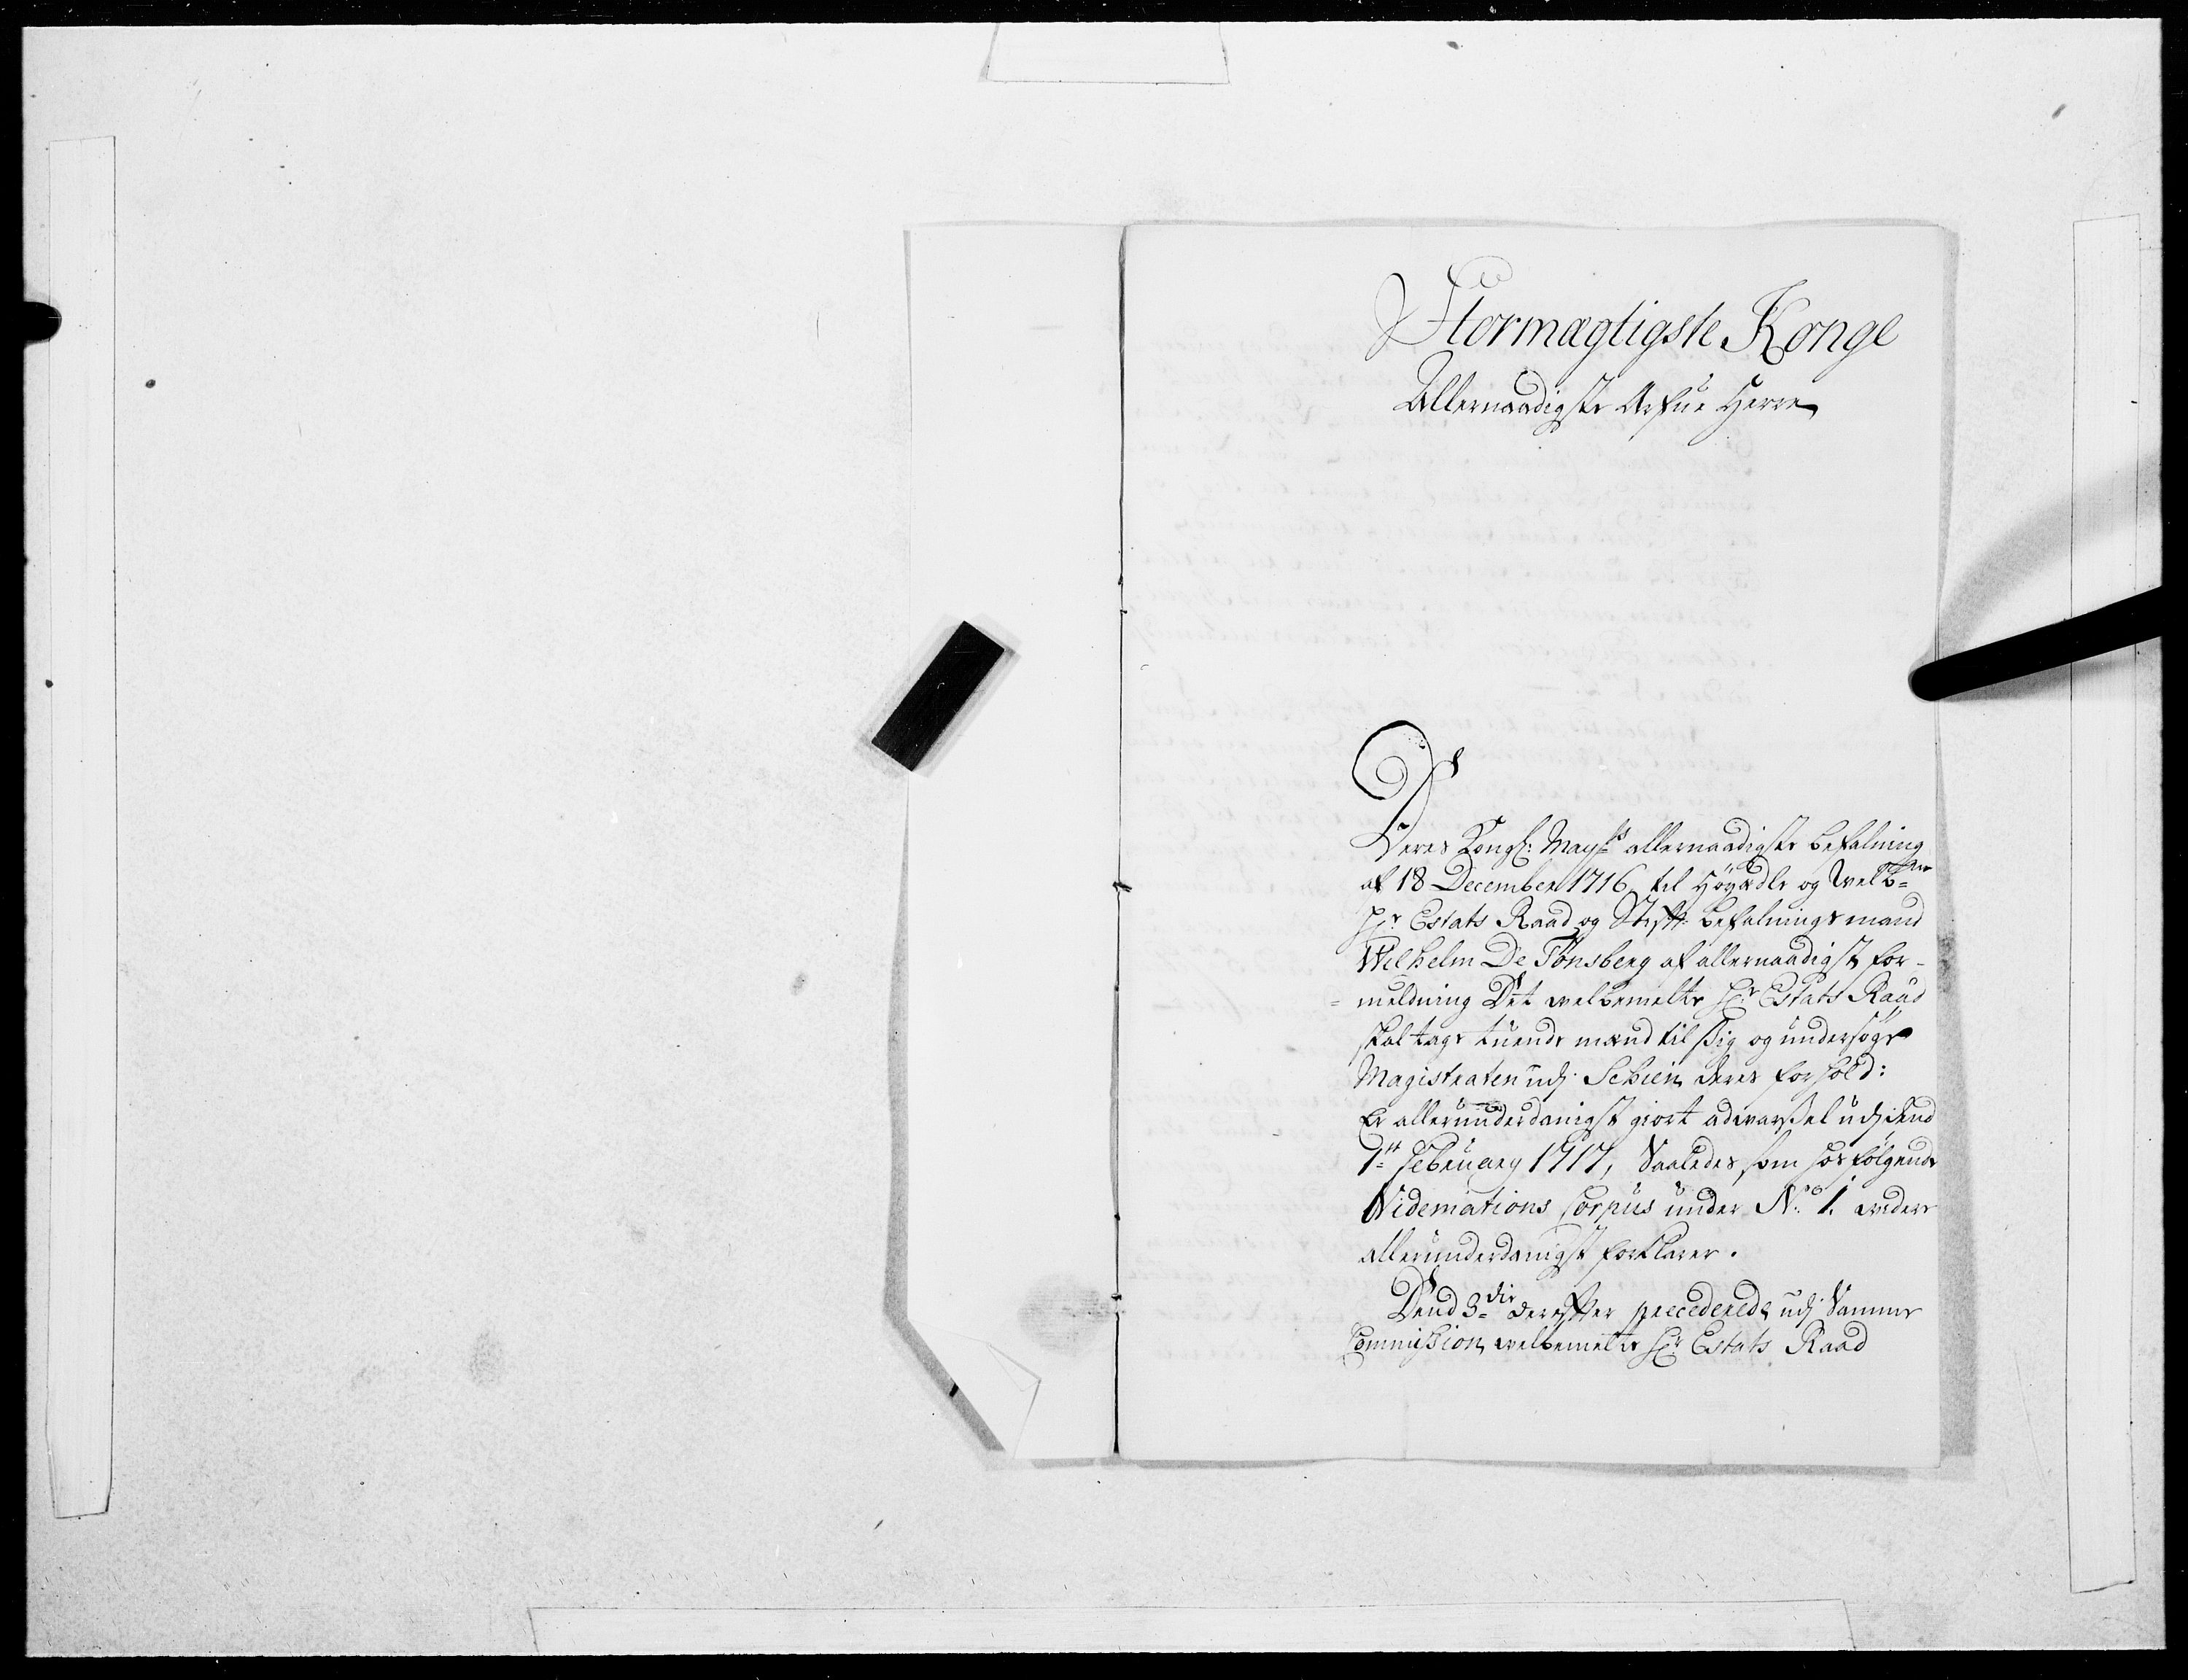 Stormægtigste Konge
Allernaadigste Arfue Herre
Deres Kongl: Mayts allernaadigste befalning
af 18 December 1716 til Høyædle og Welb:
Hr Estats Raad og Stift befalningsmand
Wilhelm De Tonsberg af allernaadigst for-
= meldning Det welbemelte Hr Estats Raad
skal tage tuende mænd til sig og undersøge
Magistraten udj Schien deres forhold:
Er allerunderdanigst giort advarsel udj dend
1te February 1717, Saaledes som hosfølgende
Videmations Corpus under No 1. widere
allerunderdanigst forklarer.
Dend 3die derefter precederede udj Samme
Commission welbemelte Hr Estats Raad